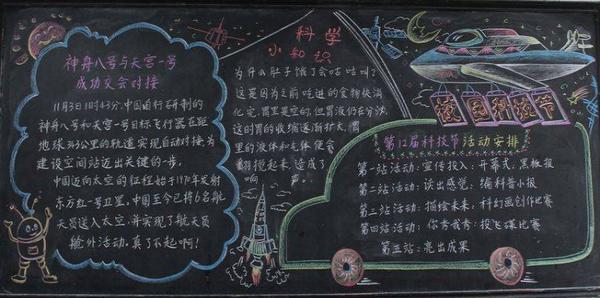 神舟八号与天宫一号
成功交会对接
11月3日1时43分,中国自行研制的
神舟八号和天宫一号目标飞行器在距
地球343公里的轨道实现自动对接,为
建设空间站迈出关键的一步。
中国迈向太空的征程始于1970年发射
东方红一号卫星,中国至今已将6名航
天员送入太空,并实现了航天员
舱外活动,真了不起啊!
科学
小知识
为什么肚子饿了会咕咕叫?
这是因为之前吃进的食物快消
化完,胃里是空的,但胃液仍在分泌,
这时胃的收缩逐渐扩大,胃
里的液体和气体便会
翻搅起来,造成了
响声。
校园科技节
第12届科技节活动安排
第一站活动:宣传投入:开幕式,黑板报
第二站活动:读出感觉:编科普小报
第三站活动:描绘未来:科幻画创作比赛
第四站活动:你秀我秀:投飞碟比赛
第五站:亮出成果